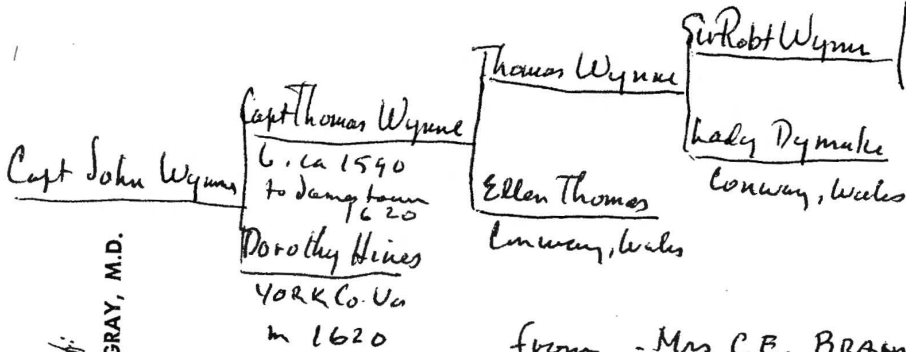 Capt John Wynne
Capt Thomas Wynne
b. ca 1590
to Jamestown
1620
Dorothy Hines
YORK Co. Va
m 1620
Thomas Wynne
Ellen Thomas
Conway, Wales
Sir Robt Wynne
Lady Dymoke
Conway, Wales
GRAY, M.D.
from - Mrs C.B.